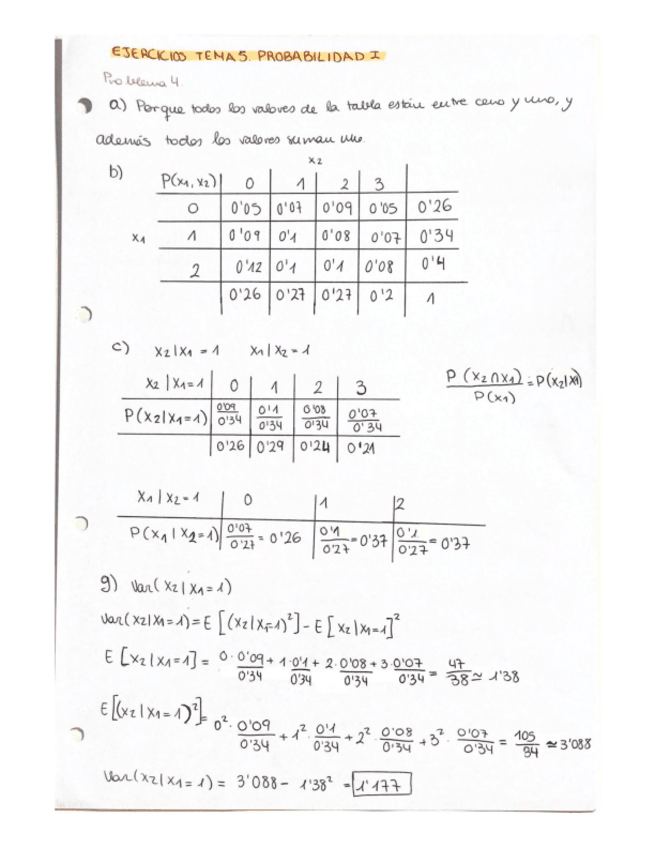 EJERCICIOS TEMA 5. PROBABILIDAD I
Problema 4
a) Porque todos los valores de la tabla están entre cero y uno, y
además todos los valores suman uno.
b) x2
P(x1, x2) 0 1 2 3
0 0'05 0'07 0'09 0'05 0'26
x1 1 0'09 0'1 0'08 0'07 0'34
2 0'12 0'1 0'1 0'08 0'4
0'26 0'27 0'27 0'2 1
c) x2|x1 = 1 x1|x2 = 1
P(x2∩x1)/P(x1) = P(x2|x1)
x2|x1=1 0 1 2 3
P(x2|x1=1) 0'09/0'34 0'1/0'34 0'08/0'34 0'07/0'34
0'26 0'29 0'24 0'21
x1|x2=1 0 1 2
P(x1|x2=1) 0'07/0'27 = 0'26 0'1/0'27 = 0'37 0'1/0'27 = 0'37
g) Var(x2|x1=1)
Var(x2|x1=1) = E[(x2|x1=1)²] - E[x2|x1=1]²
E[x2|x1=1] = 0·0'09/0'34 + 1·0'1/0'34 + 2·0'08/0'34 + 3·0'07/0'34 = 47/38 ≃ 1'38
E[(x2|x1=1)²] = 0²·0'09/0'34 + 1²·0'1/0'34 + 2²·0'08/0'34 + 3²·0'07/0'34 = 105/34 ≃ 3'088
Var(x2|x1=1) = 3'088 - 1'38² = 1'177